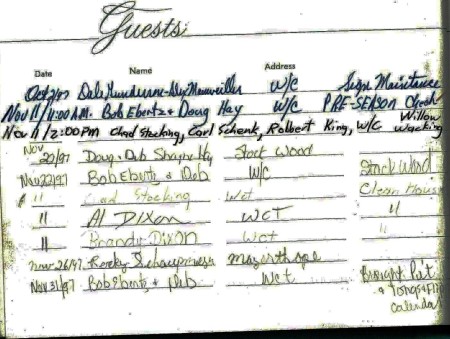 Guests
Date Name Address
Oct 2/97 Dale Gunderson W/C Sign Maintance
Nov 11/11:00 A.M. Bob Ebertz + Doug Hay W/C PRE-SEASON Check
Nov 11/2:00 PM Chad Stocking, Carl Schenk, Robert King, W/C Willow Wacking
Nov 20/97 Doug + Deb Hay Stock Wood
Nov 22/97 Bob Ebertz & Deb W/C Stock Wood
" Chad Stocking WCT Clean House
" Al Dixon WCT "
" Brandy Dixon WCT "
Nov 26/97 Rocky Mazerthope
Nov 31/97 Bob Ebertz + Deb WCT Brought Pit
& Tongs + calendar